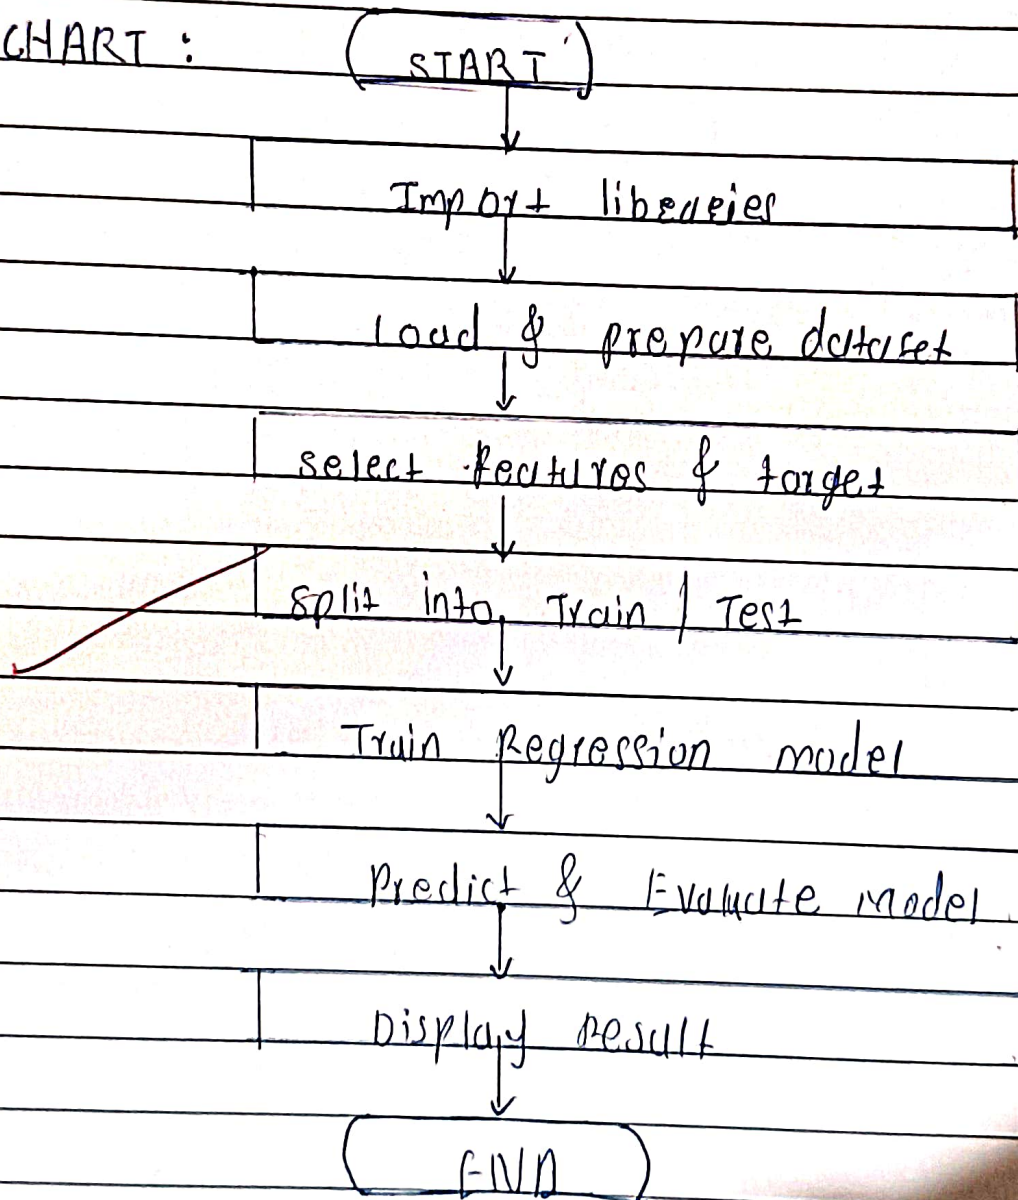 CHART :
START
Import libraries
Load & prepare dataset
select features & target
split into Train | Test
Train Regression model
Predict & Evaluate model
Display Result
END